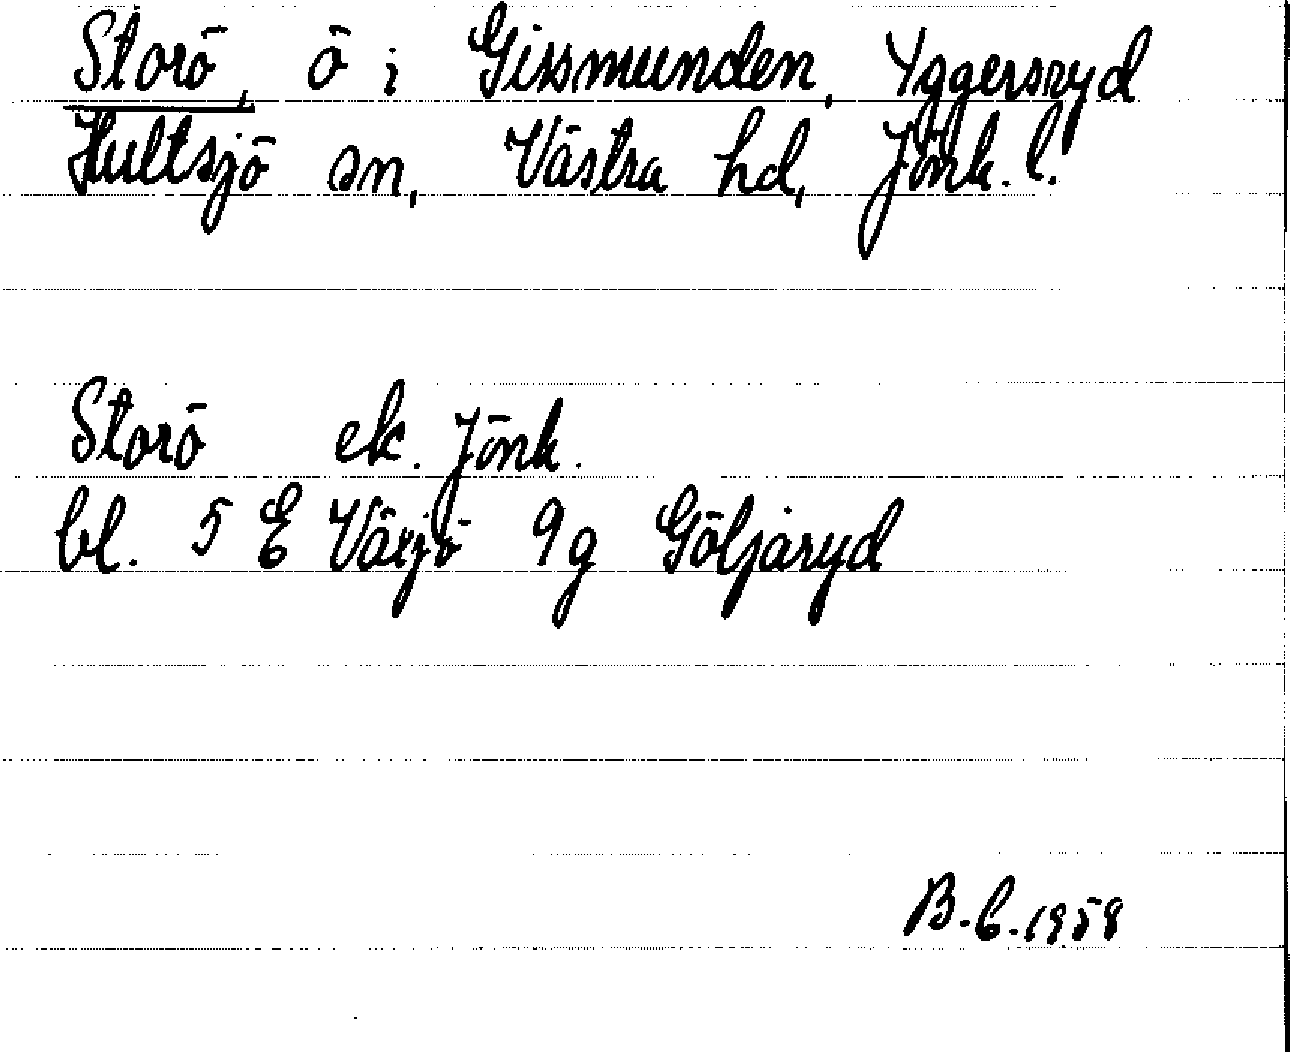 Storö, ö i Gissmunden, Yggersryd
Hultsjö sn, Västra hd, Jönk. l.
Storö ek. Jönk.
bl. 5 E Växjö 9g Göljaryd
B.E. 1958